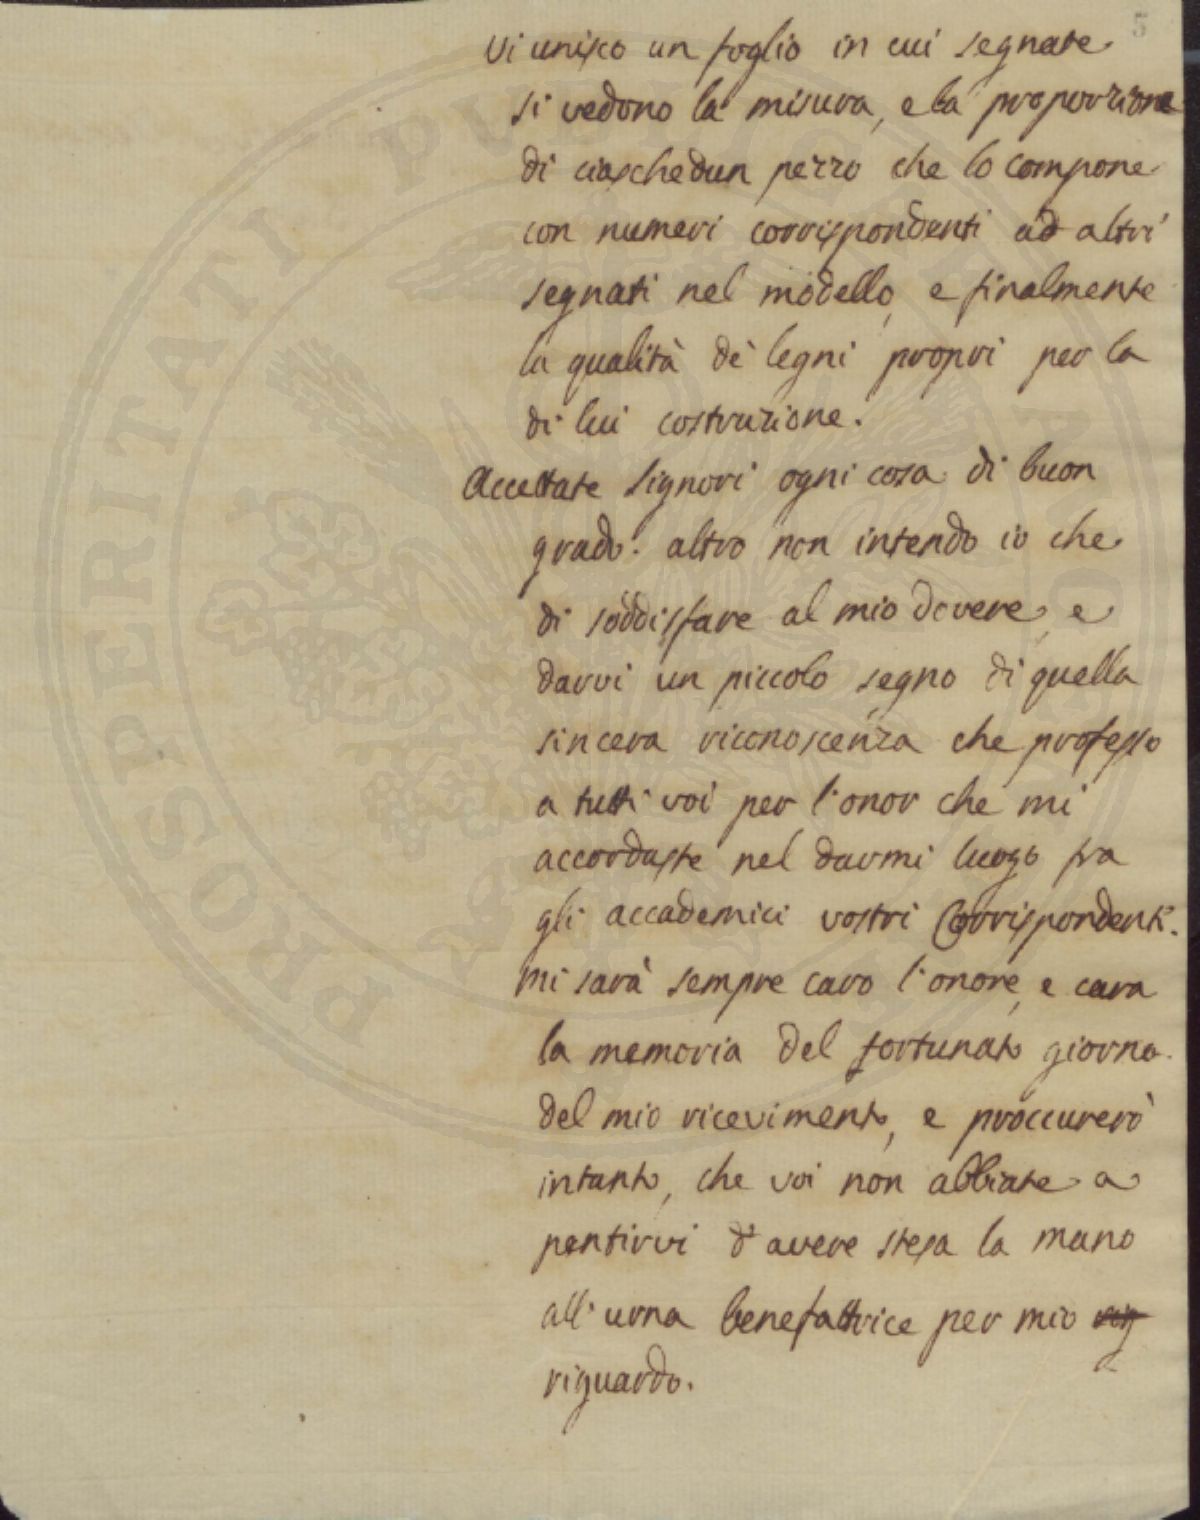 5
Vi unisco un foglio in cui segnate
si vedono la misura, e la proporzione
di ciaschedun pezzo che lo compone
con numeri corrispondenti ad altri
segnati nel modello, e finalmente
la qualità de' legni propri per la
di lui costruzione.
Accettate Signori ogni cosa di buon
grado. altro non intendo io che
di soddisfare al mio dovere, e
darvi un piccolo segno di quella
sincera riconoscenza che professo
a tutti voi per l'onor che mi
accordaste nel darmi luogo fra
gli accademici vostri Corrispondenti.
Mi sarà sempre caro l'onore, e cara
la memoria del fortunato giorno
del mio ricevimento, e proccurerò
intanto, che voi non abbiate a
pentirvi d'avere stesa la mano
all'urna benefattrice per mio rig
riguardo.
PROSPERITATI PUBLICAE